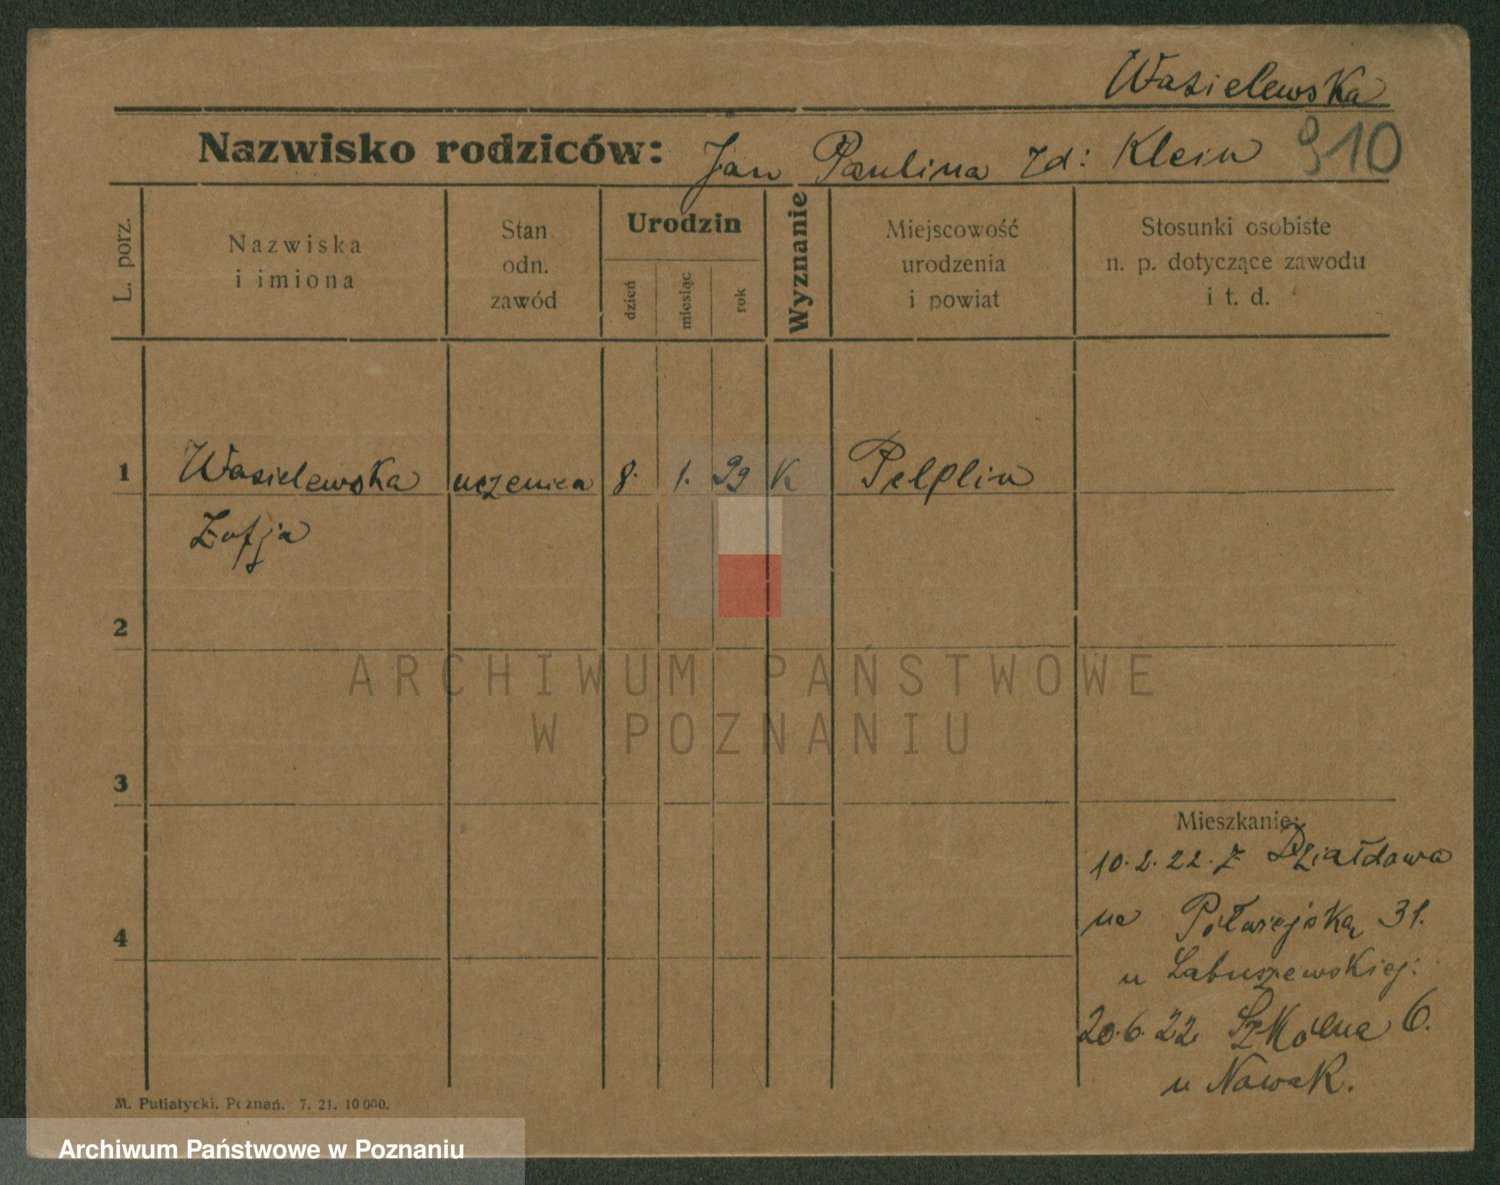 Wasielewska
Nazwisko rodziców: Jan Paulina zd: Klein 910
L. porz.
Nazwiska
i imiona
Stan
odn.
zawód
Urodzin
dzień
miesiąc
rok
Wyznanie
Miejscowość
urodzenia
i powiat
Stosunki osobiste
n. p. dotyczące zawodu
i t. d.
1 Wasielewska uczenica 8. 1. 99 K Pelplin
Zofja
2
ARCHIWUM PAŃSTWOWE
W POZNANIU
3
Mieszkanie:
10.2.22. z Działdowa
na Półwiejską 31.
4
u Łabuszewskiej.
20.6.22 Szkolna 6.
u Nowak.
M. Putiatycki, Poznań. 7. 21. 10 000.
Archiwum Państwowe w Poznaniu